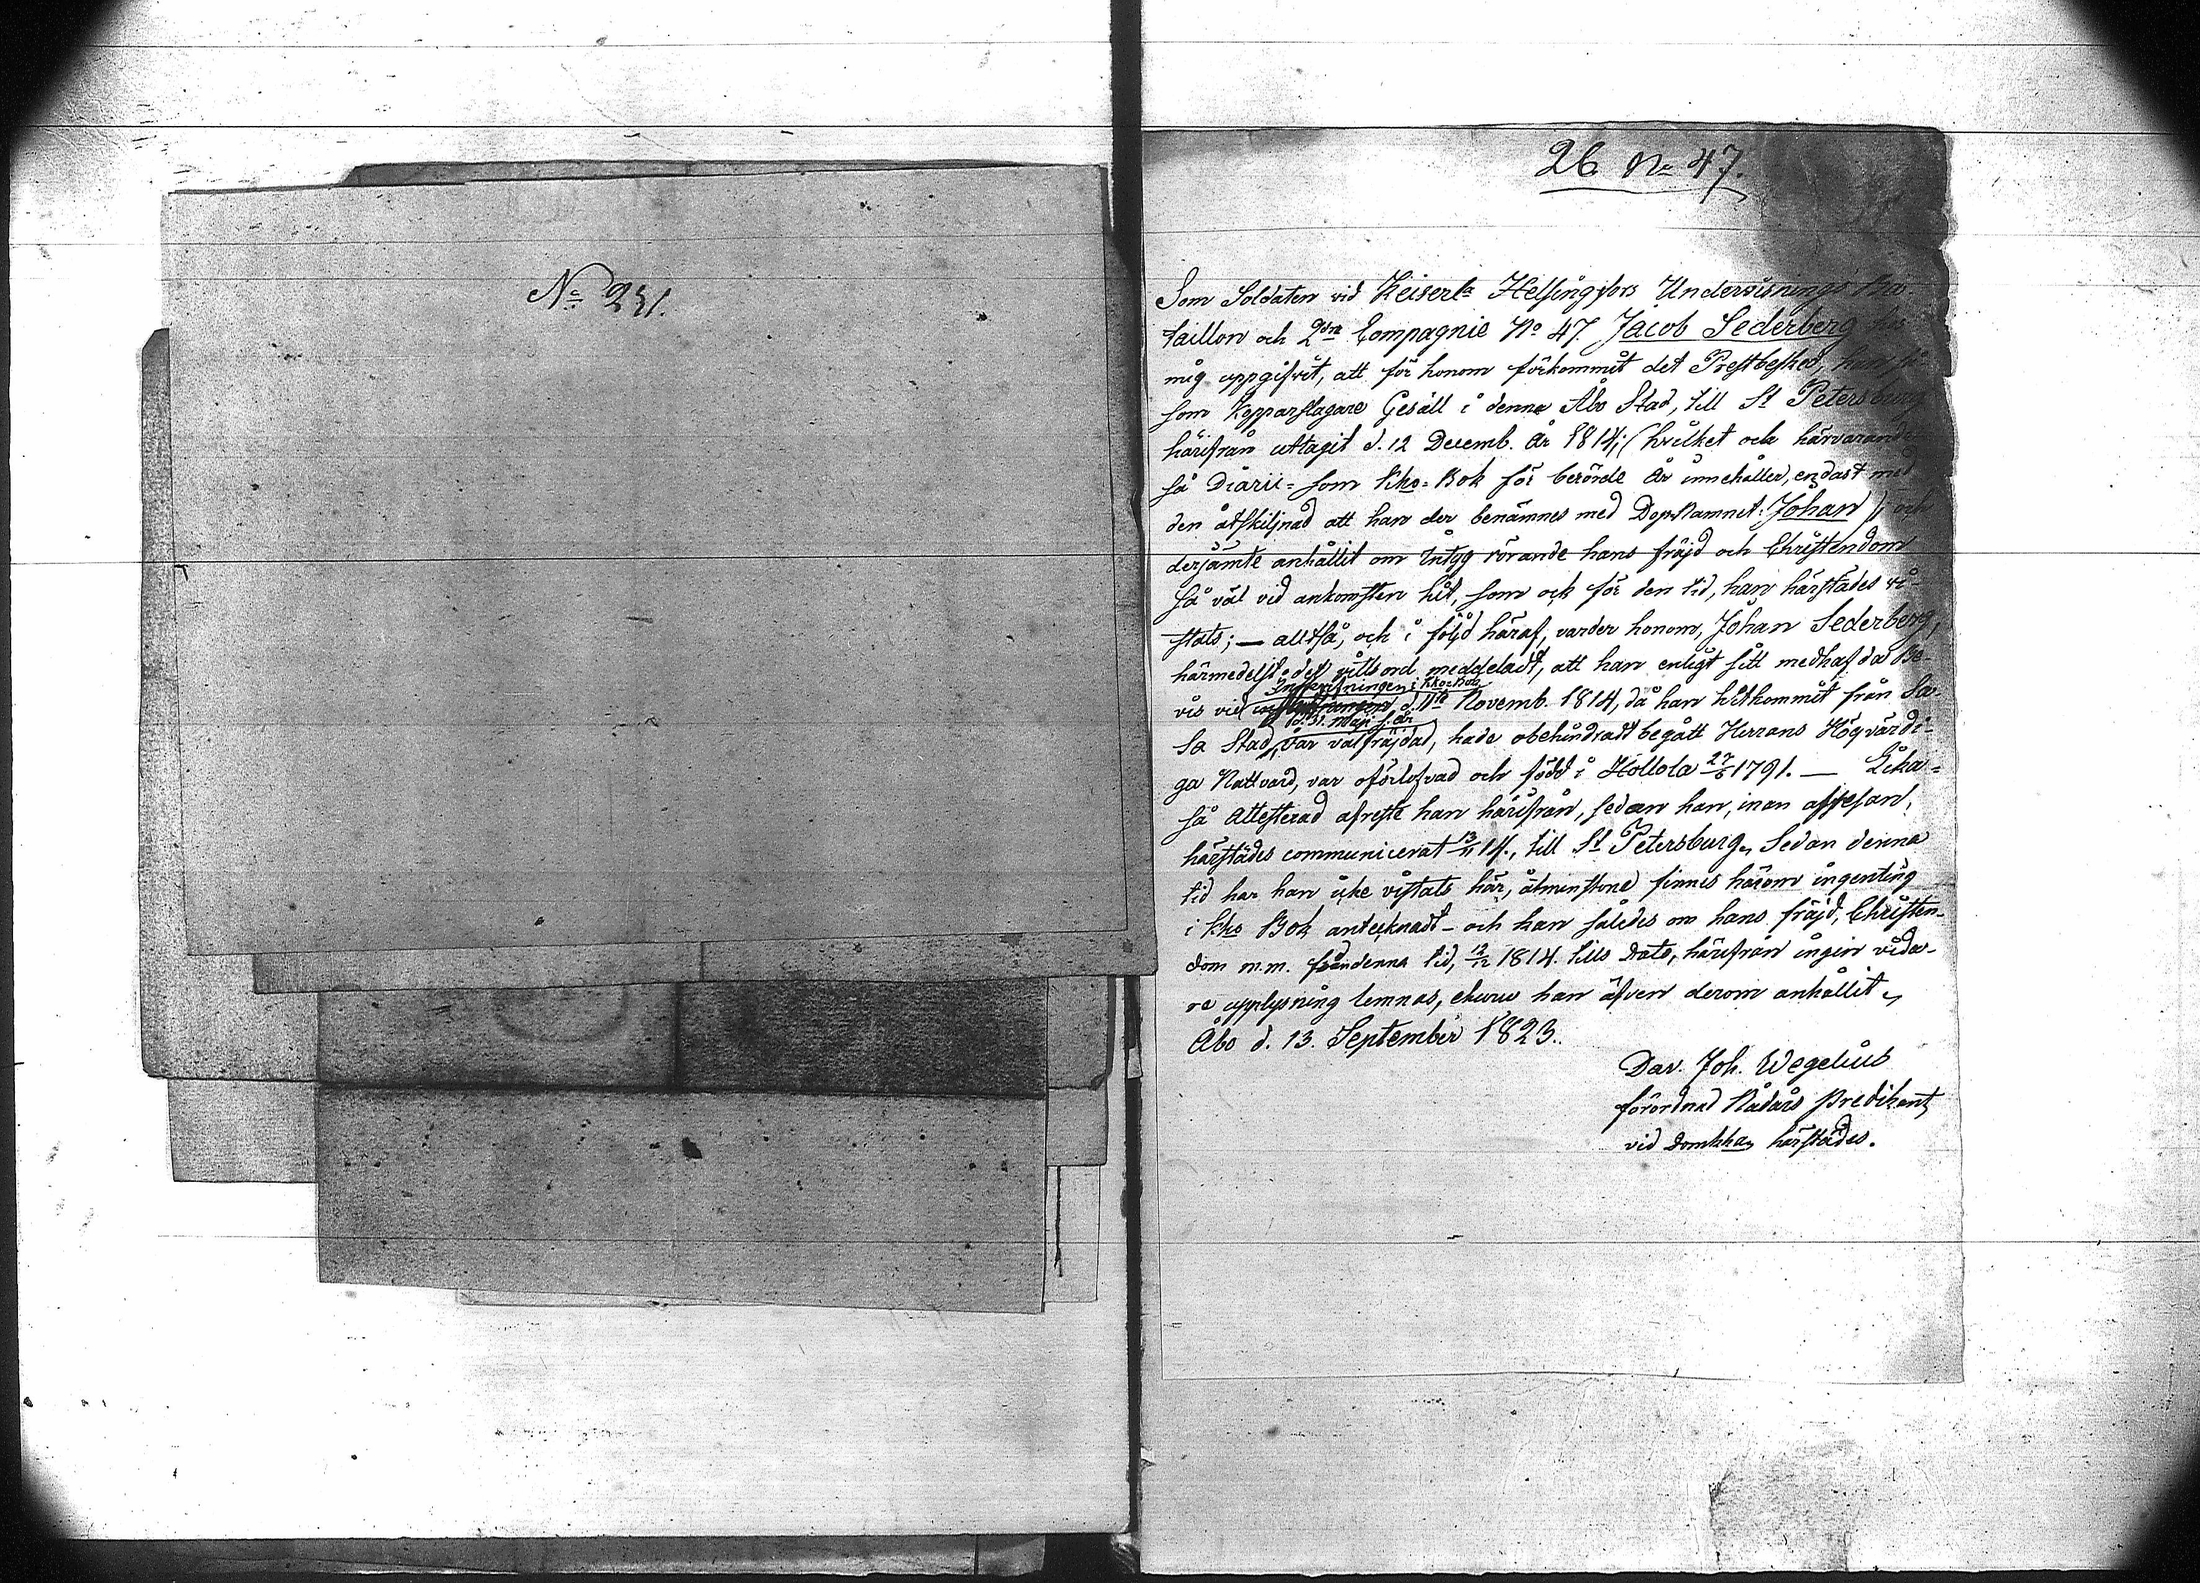 No 231.
26 No 47.
Som Soldaten vid Keiserla Helsingfors Undervisnings Ba-
taillon och 2dra Compagnie No 47. Jacob Sederberg hos
mig uppgifvit, att för honom förkommit det Prestbesked, han så
som Kopparslagare Gesäll i denna Åbo Stad, till St Petersburg
härifrån uttagit d. 12 Decemb. år 1814; (hvilket och härvarande
så Diarii- som Kko-Bok för berörde år innehåller, endast med
den åtskiljnad att han der benämnes med Dop-Namnet: Johan); och
derjämte anhållit om Intyg rörande hans fräjd och Christendom
så väl vid ankomsten hit, som ock för den tid, han härstädes vi-
stats; — alltså, och i följd häraf, varder honom, Johan Sederberg,
härmedelst det vittsord meddeladt, att han enligt sitt medhafda Be-
Inskrifningen i Kko-Bok
vis vid d. 11te Novemb. 1814, då han hitkommit från Va-
(d. 31. Maji s. år
sa Stad, var välfräjdad, hade obehindradt begått Herrans Högvärdi-
ga Nattvard, var oförlofvad och född i Hollola 27/5 1791. — Lika-
så attesterad afreste han härifrån, sedan han, inan afresan,
härstädes communicerat 13/11 14., till St Petersburg. Sedan denna
tid har han icke vistats här, åtminstone finnes härom ingenting
i Kko Bok antecknadt - och kan således om hans fräjd, Christen-
dom m.m. från denna tid, 12/12 1814. tills dato, härifrån ingen vida-
re upplysning lemnas, ehuru han äfven derom anhållit.
Åbo d. 13. September 1823.
Dav. Joh. Wegelius
förordnad Rådårs Predikant
vid Domkka härstädes.